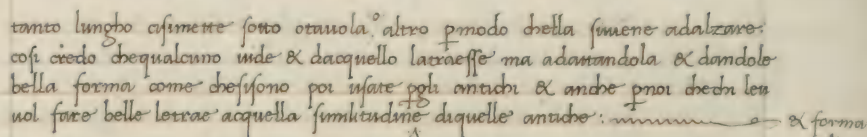 tanto lungho csimette sotto otauola o altro pmodo chella siuiene adalzare:
cosi credo chequalcuno uide & dacquello latraesse ma adattandola & dandole
bella forma come chesisono poi usate pgli antichi & anche pnoi chechi leu
uol fare belle letrae acquella similitudine diquelle antiche: & forma